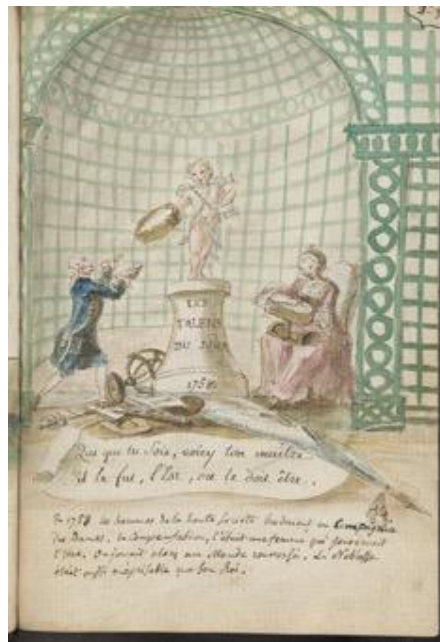 LES
TALENS
DU JOUR
1758.
Qui que tu sois, voicy ton maitre
Il le fut, l'Est, ou le doit être.
En 1758 les hommes de la haute Société brodoient en Compagnie
des Dames. la Compensation, C'était une femme qui gouvernait
l'État. On jouait alors au Monde renversé. La Noblesse
était aussi méprisable que son Roi.